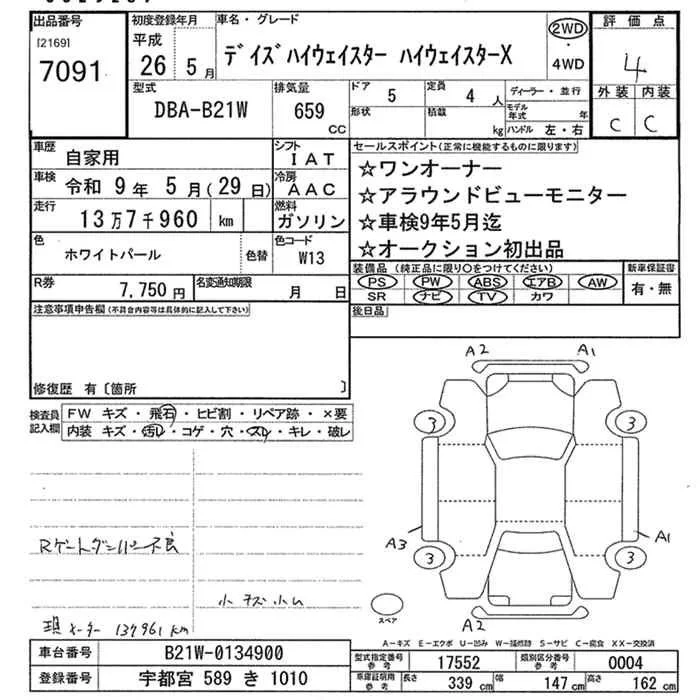 出品番号
[2169]
7091
初度登録年月
平成
26 5月
車名・グレード
デイズハイウェイスター ハイウェイスターX
2WD
・
4WD
評価点
4
外装 内装
C C
型式
DBA-B21W
排気量
659
CC
ドア 5
定員 4 人
形状
積載 kg
ディーラー・並行
モデル年式 年
ハンドル 左・右
車歴 自家用
シフト
IAT
車検 令和 9年 5月(29日)
冷房
AAC
走行 13万7千960 km
燃料
ガソリン
色 ホワイトパール
色替
色コード
W13
R券 7,750円
名変通知期限 月 日
セールスポイント(正常に機能するものに限ります)
☆ワンオーナー
☆アラウンドビューモニター
☆車検9年5月迄
☆オークション初出品
装備品 (純正品に限り○をつけてください)
PS PW ABS エアB AW
SR ナビ TV カワ
新車保証書
有・無
後日品
注意事項申告欄(不具合内容等は具体的に記入して下さい)
修復歴 有〔箇所 〕
検査員
記入欄
FW キズ・飛石・ヒビ割・リペア跡・×要
内装 キズ・汚レ・コゲ・穴・スレ・キレ・破レ
Rゲートダンパー不良
小キズ小ム
現メーター 137961km
A2 A1
3 3
A3 A1
3 3
A2
スペア
A-キズ E-エクボ U-凹み W-補修跡 S-サビ C-腐食 XX-交換済
車台番号 B21W-0134900
登録番号 宇都宮 589 き 1010
型式指定番号
参考
17552
類別区分番号
参考
0004
車庫証明用
参考
長さ 339 cm
幅 147 cm
高さ 162 cm